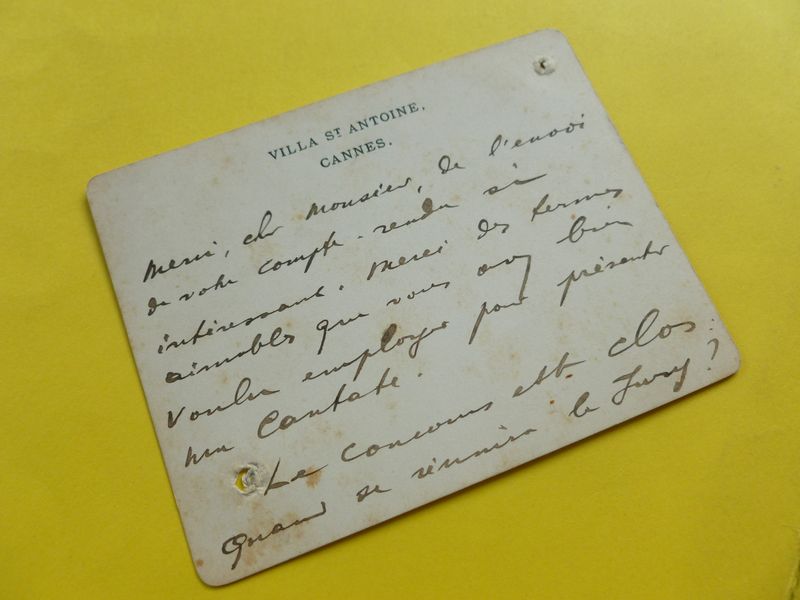 VILLA ST ANTOINE,
CANNES.
Merci, cher Monsieur, de l'envoi
de votre compte-rendu si
intéressant. Merci des termes
aimables que vous avez bien
voulu employer pour présenter
ma Cantate.
Le concours est clos:
Quand se réunira le Jury?